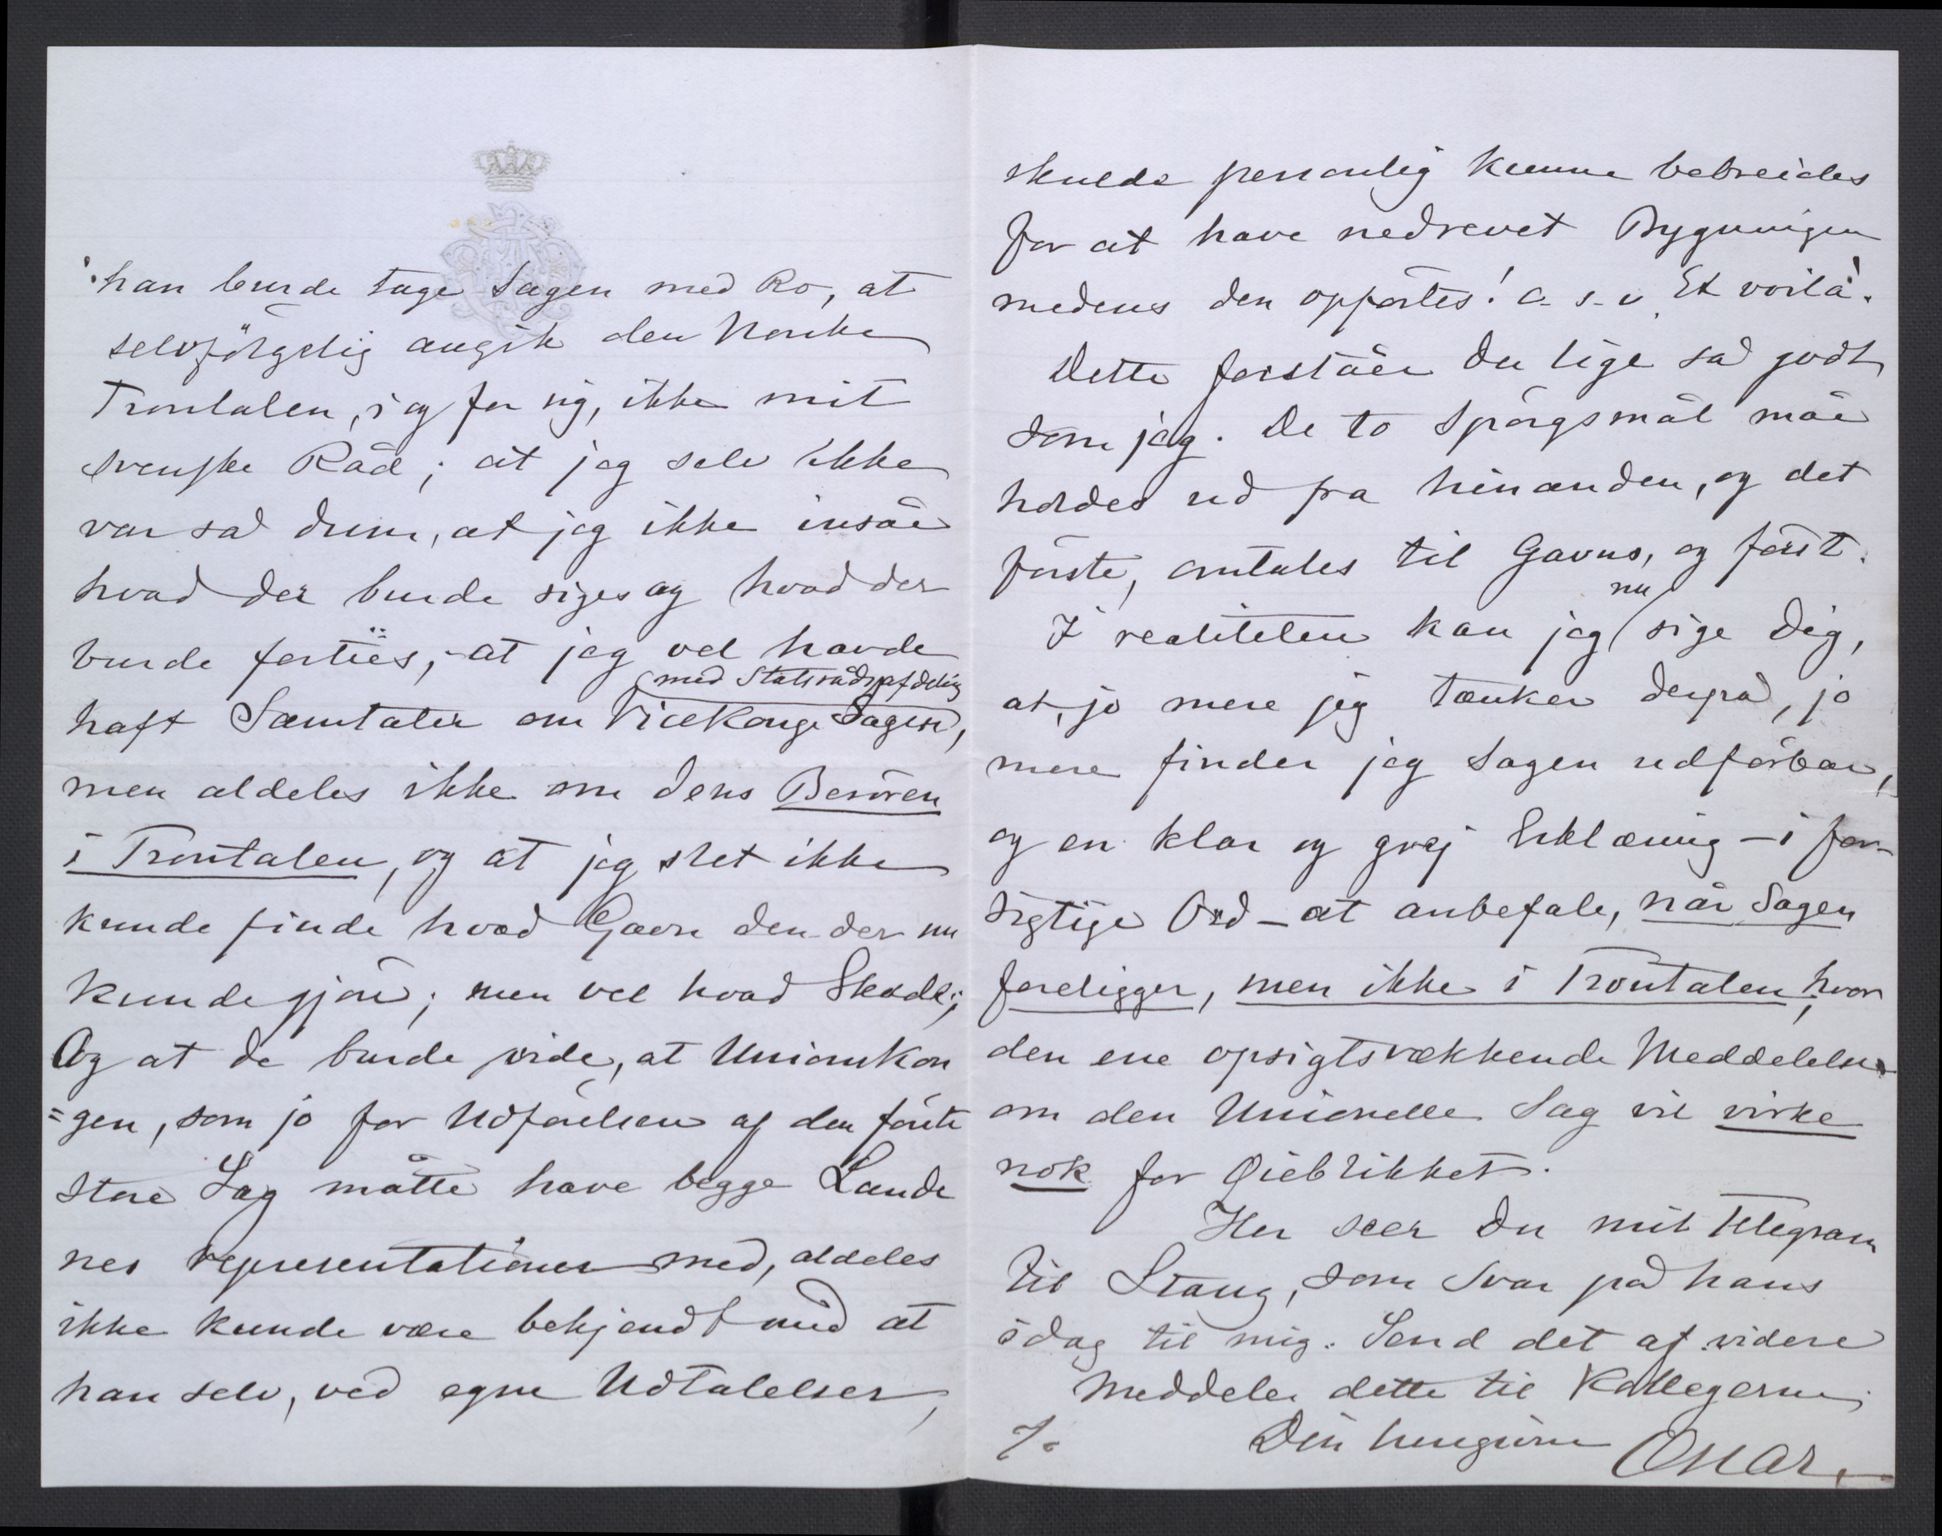 han burde tage Sagen med Ro, at
selvfölgelig angik den Norske
Trontalen, i og for sig, ikke mit
svenske Råd; at jeg selv ikke
var så dum, at jeg ikke insåe
hvad der burde siges og hvad der
burde forties; at jeg vel havde
med Statsrådsafdeling
haft Samtaler om Vicekonge Sagen,
men aldeles ikke om dens Berören
i Trontalen, og at jeg slet ikke
kunde finde hvad Gavn den der nu
kunde gjöre; men vel hvad Skade;
Og at de burde vide, at Unionskon
=gen, som jo for Udförelsen af den förste
store Sag måtte have begge Lande
nes representationer med, aldeles
ikke kunde være bekjendt med at
han selv, ved egne Udtalelser,
skulde personlig kunne bebreides
for at have nedrevet Bygningen
medens den opförtes! o.s.v. Et voilà.
Dette forståer Du lige så godt
som jeg. De to Spörgsmål måe
holdes ud fra hinanden, og det
förste, omtales til Gavns, og först.
nu
I realiteten kan jeg sige Dig,
at, jo mere jeg tænker derpå, jo
mere finder jeg Sagen udförbar,
og en klar og grej Erklæring - i for-
sigtige Ord - at anbefale, når Sagen
foreligger, men ikke i Trontalen; hvor
den ene opsigtsvækkende Meddelelse
om den Unionelle Sag vil virke
nok for Øieblikket.
Her seer Du mit Telegram
til Stang, som Svar på hans
idag til mig. Send det af videre
Meddeler dette til Kollegerne
Din hengivne Oscar.